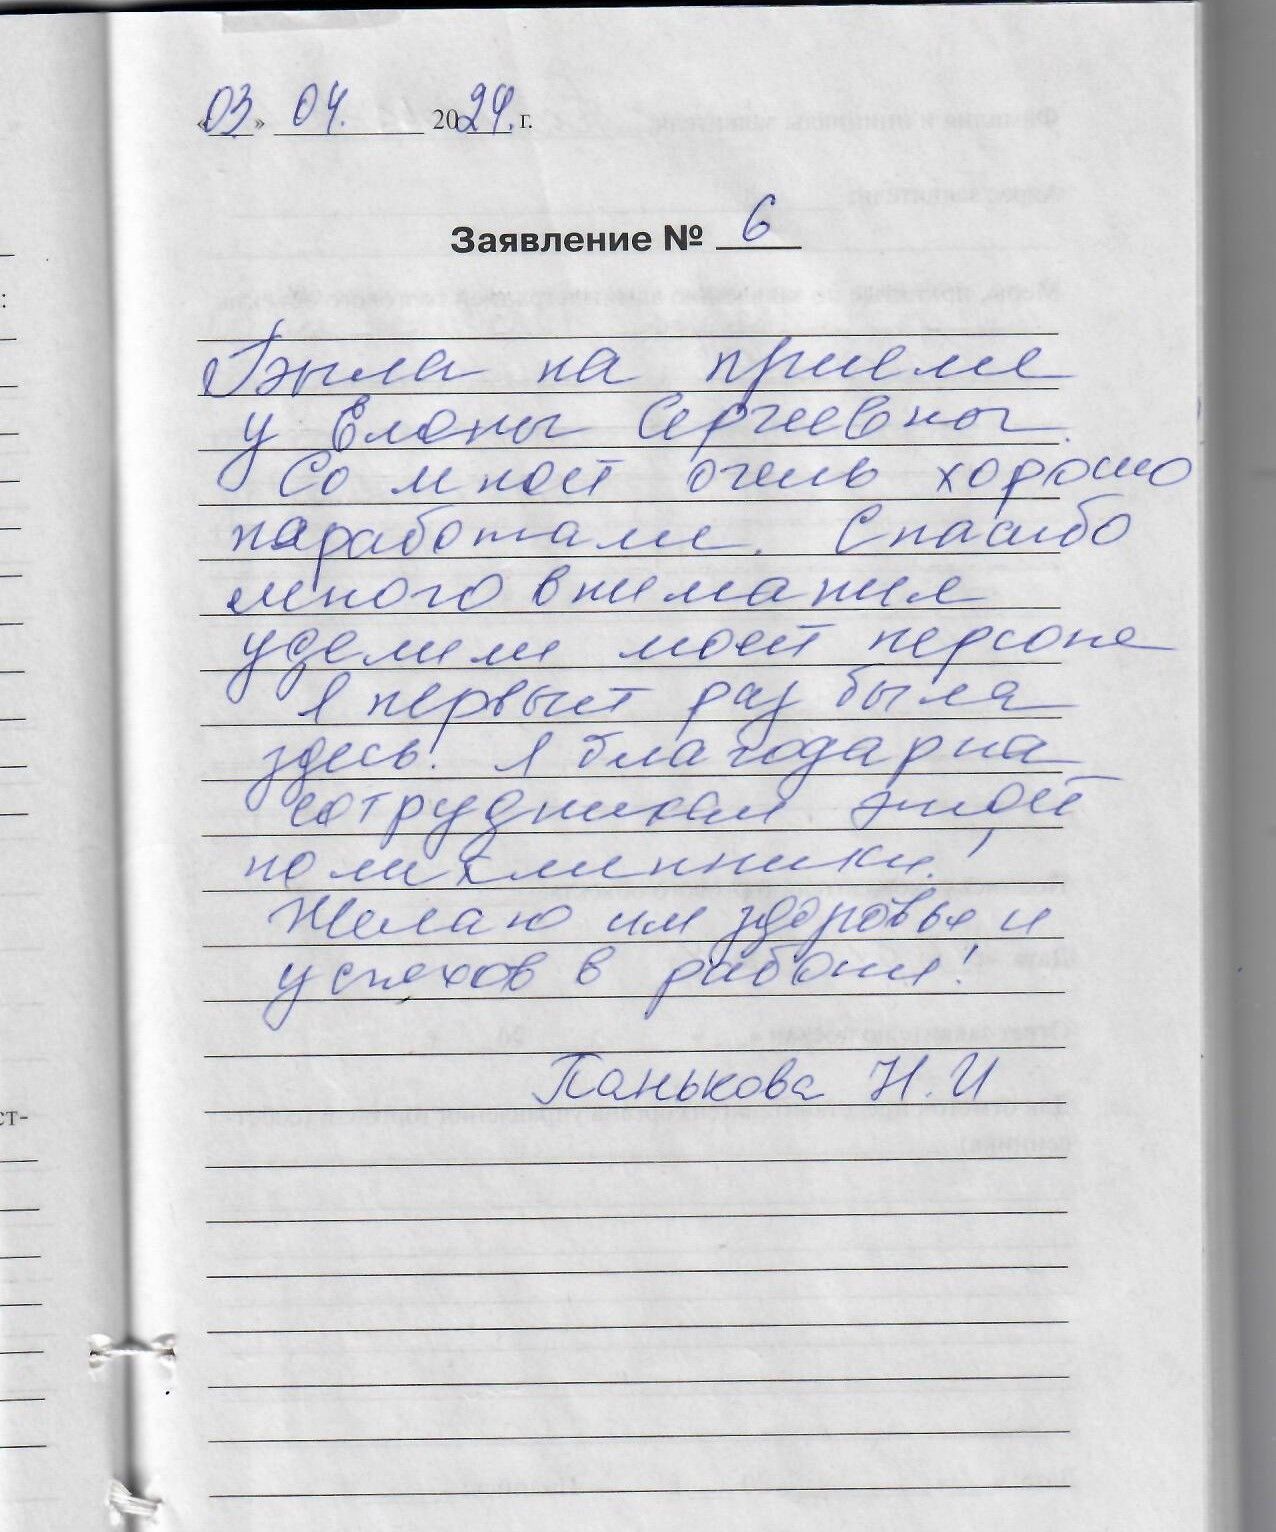 «03» 04. 2024. г.
Заявление № 6
Была на приеме
у Елены Сергеевны.
Со мной очень хорошо
поработали. Спасибо
много внимания
уделили моей персоне
Я первый раз была
здесь. Я благодарна
сотрудникам этой
поликлинники!
Желаю им здоровья и
успехов в работе!
Панькова Н.И
:
ст-